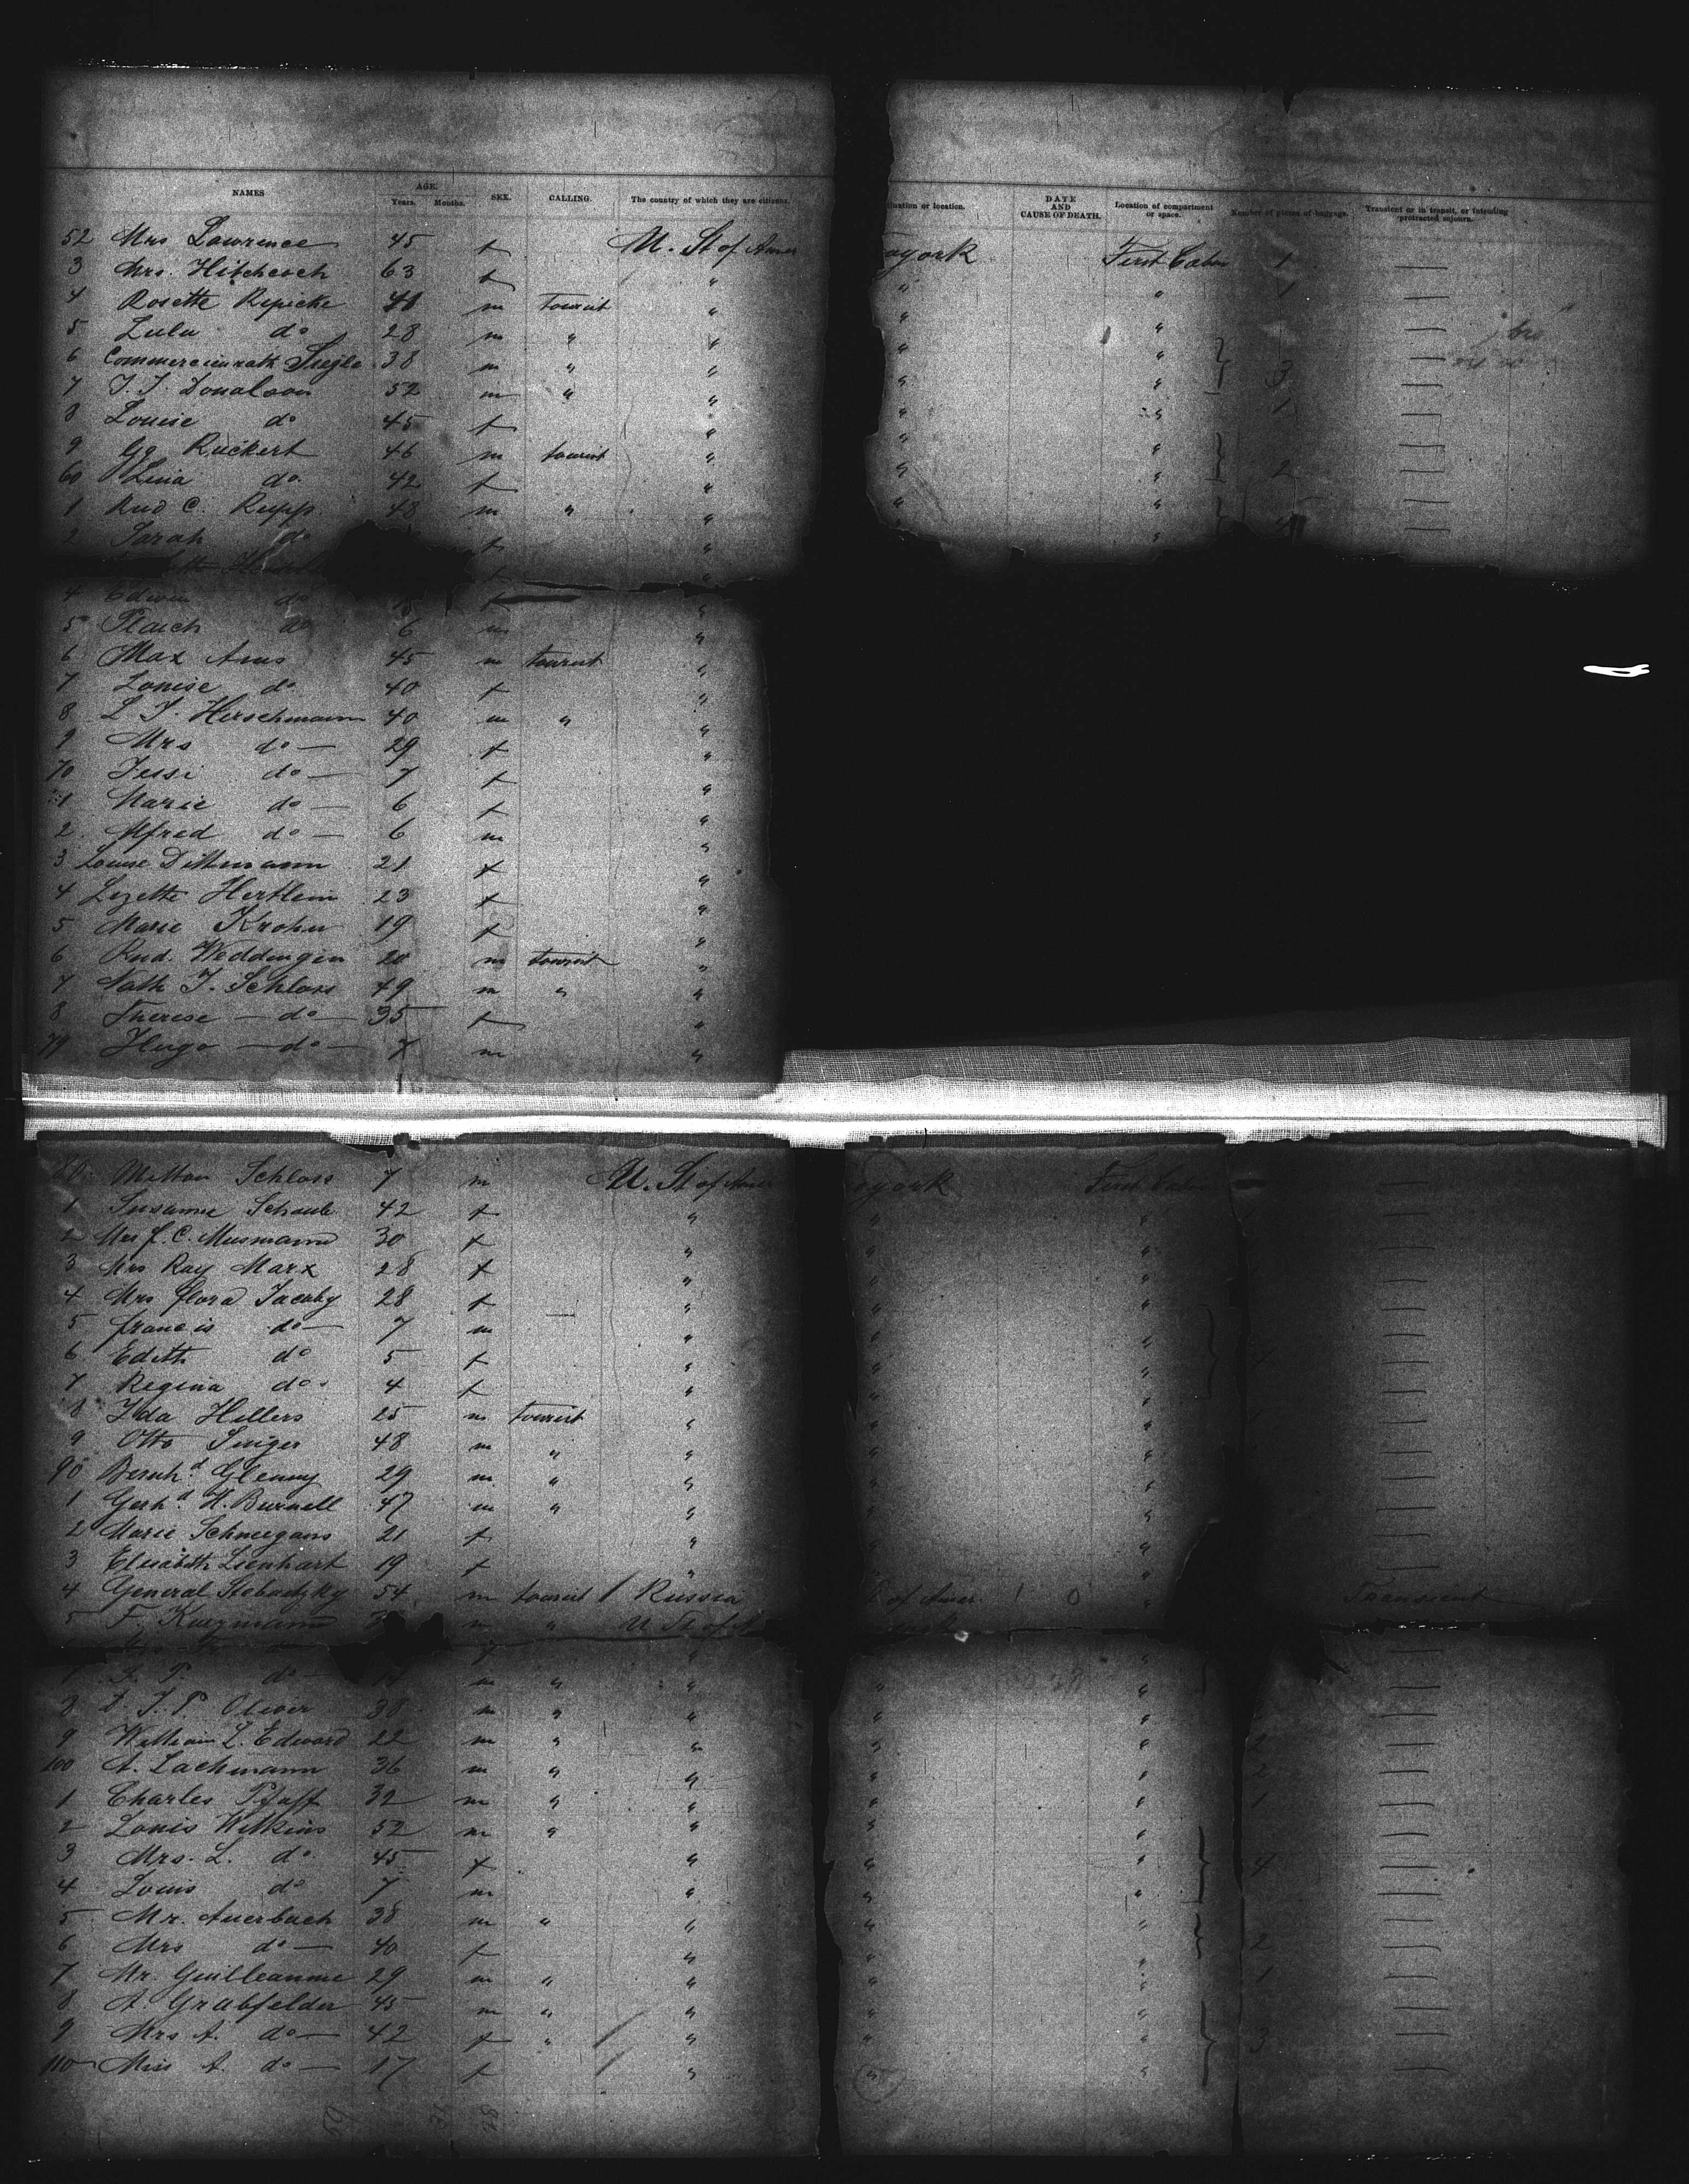 NAMES AGE. Years. Months. SEX. CALLING. The country of which they are citizens. location. DATE AND CAUSE OF DEATH. Location of compartment or space. Number of pieces of baggage. Transient or in transit, or intending protracted sojourn.
52 Mrs Lawrence 45 f U. St of Amer york First Cabin 1 —
3 Mrs. Hitchcock 63 f " " " 1 —
4 Rosette Repicke m tourist " " " —
5 Lulu do 28 m " " " " —
6 Commercienrath 38 m " " " " 3 —
7 Donalson 52 m " " " " 1 —
8 Louise do 45 f " " " —
9 Ruckert 46 m tourist " " " 2 —
60 Lina do. 42 f " " " —
1 Rud C. Rupp. 48 m " " " " —
2 Sarah do f "
4 Edwin do "
5 do 6 m "
6 Max 45 m tourist "
7 Louise do 40 f "
8 L J. Hirschmann 40 m " "
9 Mrs do — 29 f "
70 Jessi do — 7 f "
1 Marie do — 6 f "
2 Alfred do — 6 m "
3 Louise Dittmann 21 f "
4 Lizette Hertlein 23 f "
5 Marie Krohn 19 f "
6 Rud. Weddingen 20 m tourist "
7 Nath J. Schloss 49 m " "
8 Therese — do — 35 f "
79 Hugo — do — 7 m "
80 Milton Schloss 7 m U. St of Amer york First Cabin —
1 Susanne Schaub 42 f " " " —
2 Mrs f. C. Musmann 30 f " " " —
3 Mrs Ray Marx 28 f " " " —
4 Mrs flora Jacoby 28 f " " " —
5 francis do — 7 m " " " —
6 Edith do 5 f " " " —
7 Regina do. 4 f " " " —
8 Ida Hillers 25 m tourist " " " —
9 Otto Singer 48 m " " " " —
90 Bernhd. Glenny 29 m " " " " —
1 Gerhd. H. Burnell 47 m " " " " —
2 Marie Schneegans 21 f " " " —
3 Elisabeth Lienhart 19 f " " " —
4 General 54 m tourist / Russia of Amer. 0 " Transient
5 F. m " U St of
do — m " " " " —
8 J. P. Oliver 38 m " " " " —
9 William L. Edward 22 m " " " " 2 —
100 A. Lachmann 36 m " " " " 2 —
1 Charles Pfaff 32 m " " " " 1 —
2 Louis Wilkins 52 m " " " " —
3 Mrs. L. do. 45 f " " " 4 —
4 Louis do 7 m " " " —
5 Mr. Auerbach 38 m " " " " —
6 Mrs do — 40 f " " " 2 —
7 Mr. Guilleaume 29 m " " " " 1 —
8 A. Grabfelder 45 m " " " " —
9 Mrs A. do — 42 f " " " " 3 —
110 Miss A. do — 17 f " " " —